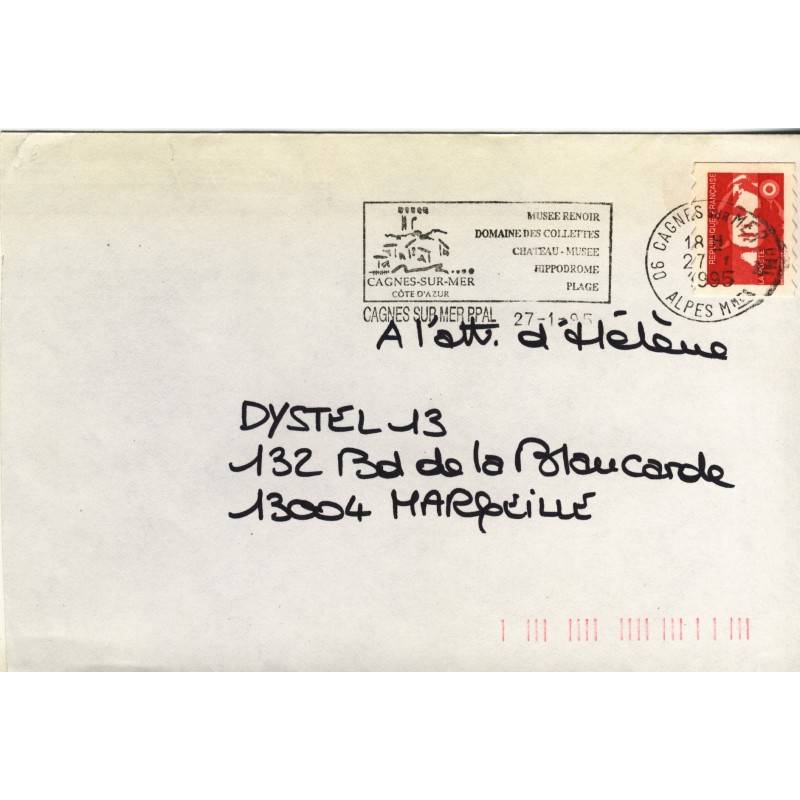 MUSEE RENOIR
DOMAINE DES COLLETTES
CHATEAU - MUSEE
HIPPODROME
PLAGE
CAGNES-SUR-MER
CÔTE D'AZUR
CAGNES SUR MER PPAL 27-1-95
06 CAGNES SUR MER
18 H
27 - 1
1995
ALPES Mmes
REPUBLIQUE FRANÇAISE
LA POSTE
A l'att. d'Hélène
DYSTEL 13
132 Bd de la Blancarde
13004 MARSEILLE